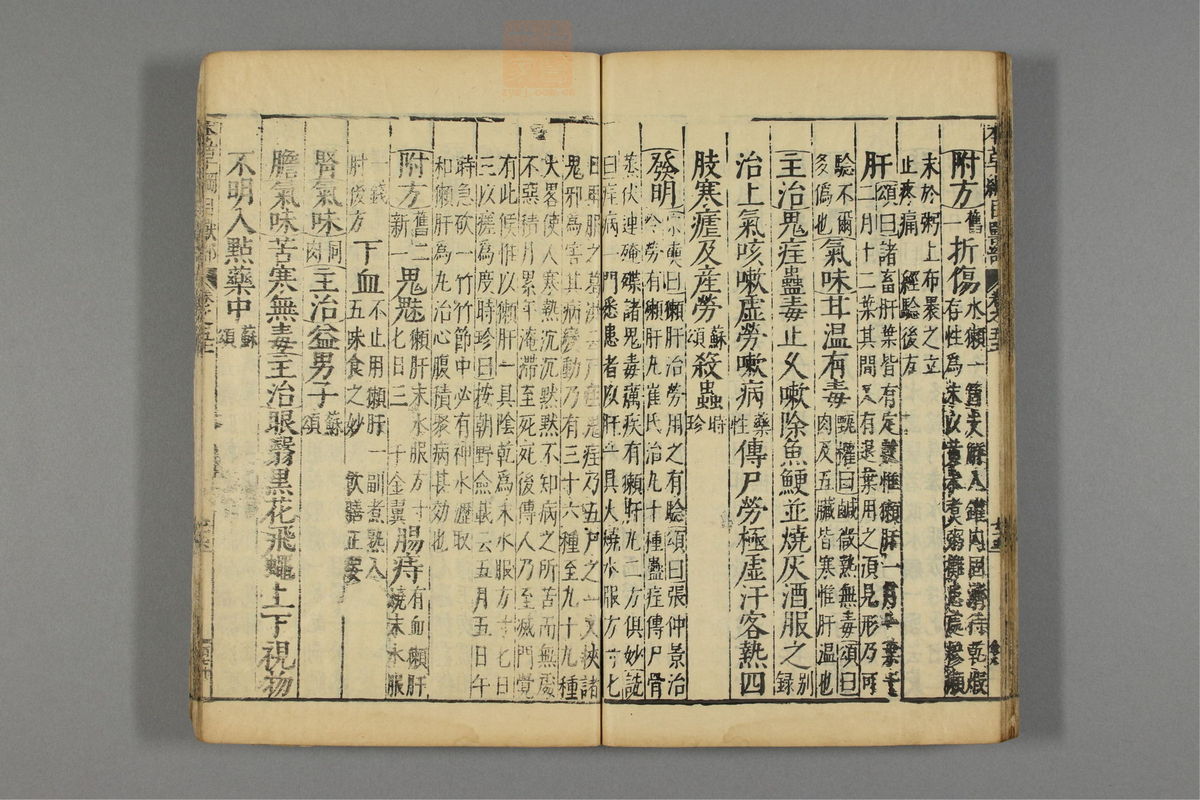 附方舊一折傷水獺一箇支解入罐內固濟待乾煆
存性為末以黃米煮粥攤患處糝獺
末於粥上布裹之立
止疼痛 經驗後方
肝頌曰諸畜肝葉皆有定數惟獺肝一月一葉十
二月十二葉其間又有退葉用之須見形乃可
驗不爾
多偽也氣味甘溫有毒甄權曰鹹微熱無毒頌曰
肉及五臟皆寒惟肝溫也
主治鬼疰蠱毒止久嗽除魚鯁並燒灰酒服之別錄
治上氣咳嗽虛勞嗽病藥性傳尸勞極虛汗客熱四
肢寒瘧及產勞蘇頌殺蟲時珍
發明宗奭曰獺肝治勞用之有驗頌曰張仲景治
冷勞有獺肝丸崔氏治九十種蠱疰傳尸骨
蒸伏連殗殜諸鬼毒癘疾有獺肝丸二方俱妙詵
曰疰病一門悉患者以肝一具火燒水服方寸匕
日再服之葛洪云尸疰鬼疰乃五尸之一又挾諸
鬼邪為害其病變動乃有三十六種至九十九種
大畧使人寒熱沉沉默默不知病之所苦而無處
不惡積月累年淹滯至死死後傳人乃至滅門覺
有此候惟以獺肝一具陰乾為末水服方寸匕日
三以瘥為度時珍曰按朝野僉載云五月五日午
時急砍一竹竹節中必有神水瀝取
和獺肝為丸治心腹積聚病甚効也
附方舊二新一鬼魅獺肝末水服方寸
七日三 千金翼腸痔有血獺肝
燒末水服
一錢
肘後方下血不止用獺肝一副煮熟入
五味食之妙 飲膳正要
腎氣味同肉主治益男子蘇頌
膽氣味苦寒無毒主治眼翳黑花飛蠅上下視物
不明入點藥中蘇頌